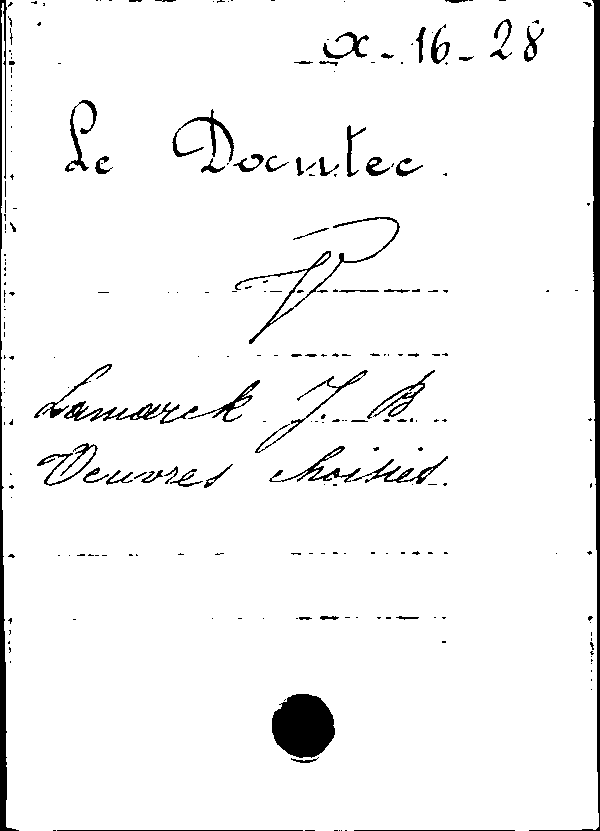 α-16-28
Le Docntec.
V
Lamarck J. B.
Oeuvres choisies.